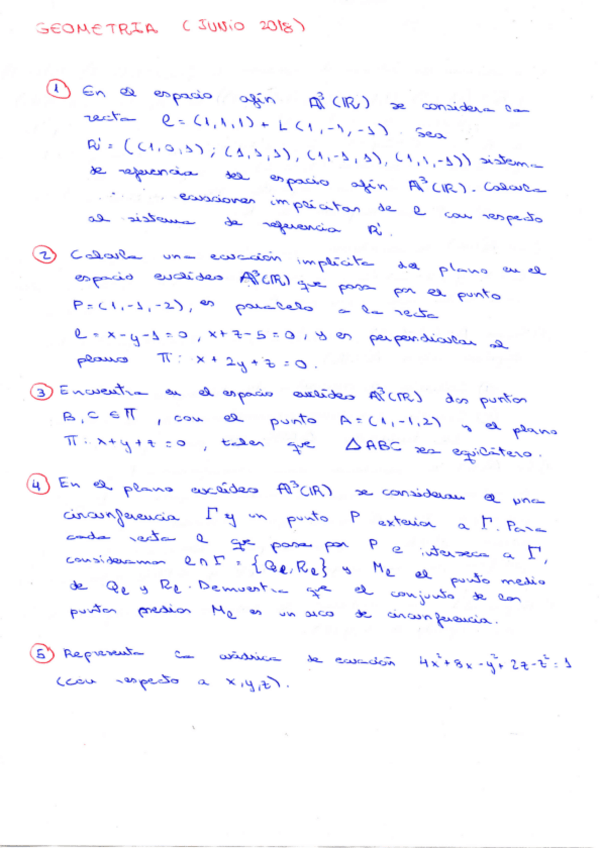 GEOMETRIA (JUNIO 2018)
① En el espacio afín A³(R) se considera la
recta l = (1,1,1) + L(1,-1,-1). Sea
R' = ((1,0,1); (1,1,1), (1,-1,1), (1,1,-1)) sistema
de referencia del espacio afín A³(R). Calcula
ecuaciones implícitas de l con respecto
al sistema de referencia R'.
② Calcula una ecuación implícita del plano en el
espacio euclídeo A³(R) que pasa por el punto
P=(1,-1,-2), es paralelo a la recta
l = x-y-1=0, x+z-5=0, y es perpendicular al
plano π: x+2y+z=0.
③ Encuentra en el espacio euclídeo A³(R) dos puntos
B, C ∈ π, con el punto A=(1,-1,2) y el plano
π: x+y+z=0, tales que △ABC sea equilátero.
④ En el plano euclídeo A³(R) se consideran el una
circunferencia Γ y un punto P exterior a Γ. Para
cada recta l que pasa por P e interseca a Γ,
consideramos l∩Γ = {Qₗ, Rₗ} y Mₗ el punto medio
de Qₗ y Rₗ. Demuestra que el conjunto de los
puntos medios Mₗ es un arco de circunferencia.
⑤ Representa la cuádrica de ecuación 4x²+8x-y²+2z-z²=1
(con respecto a x,y,z).